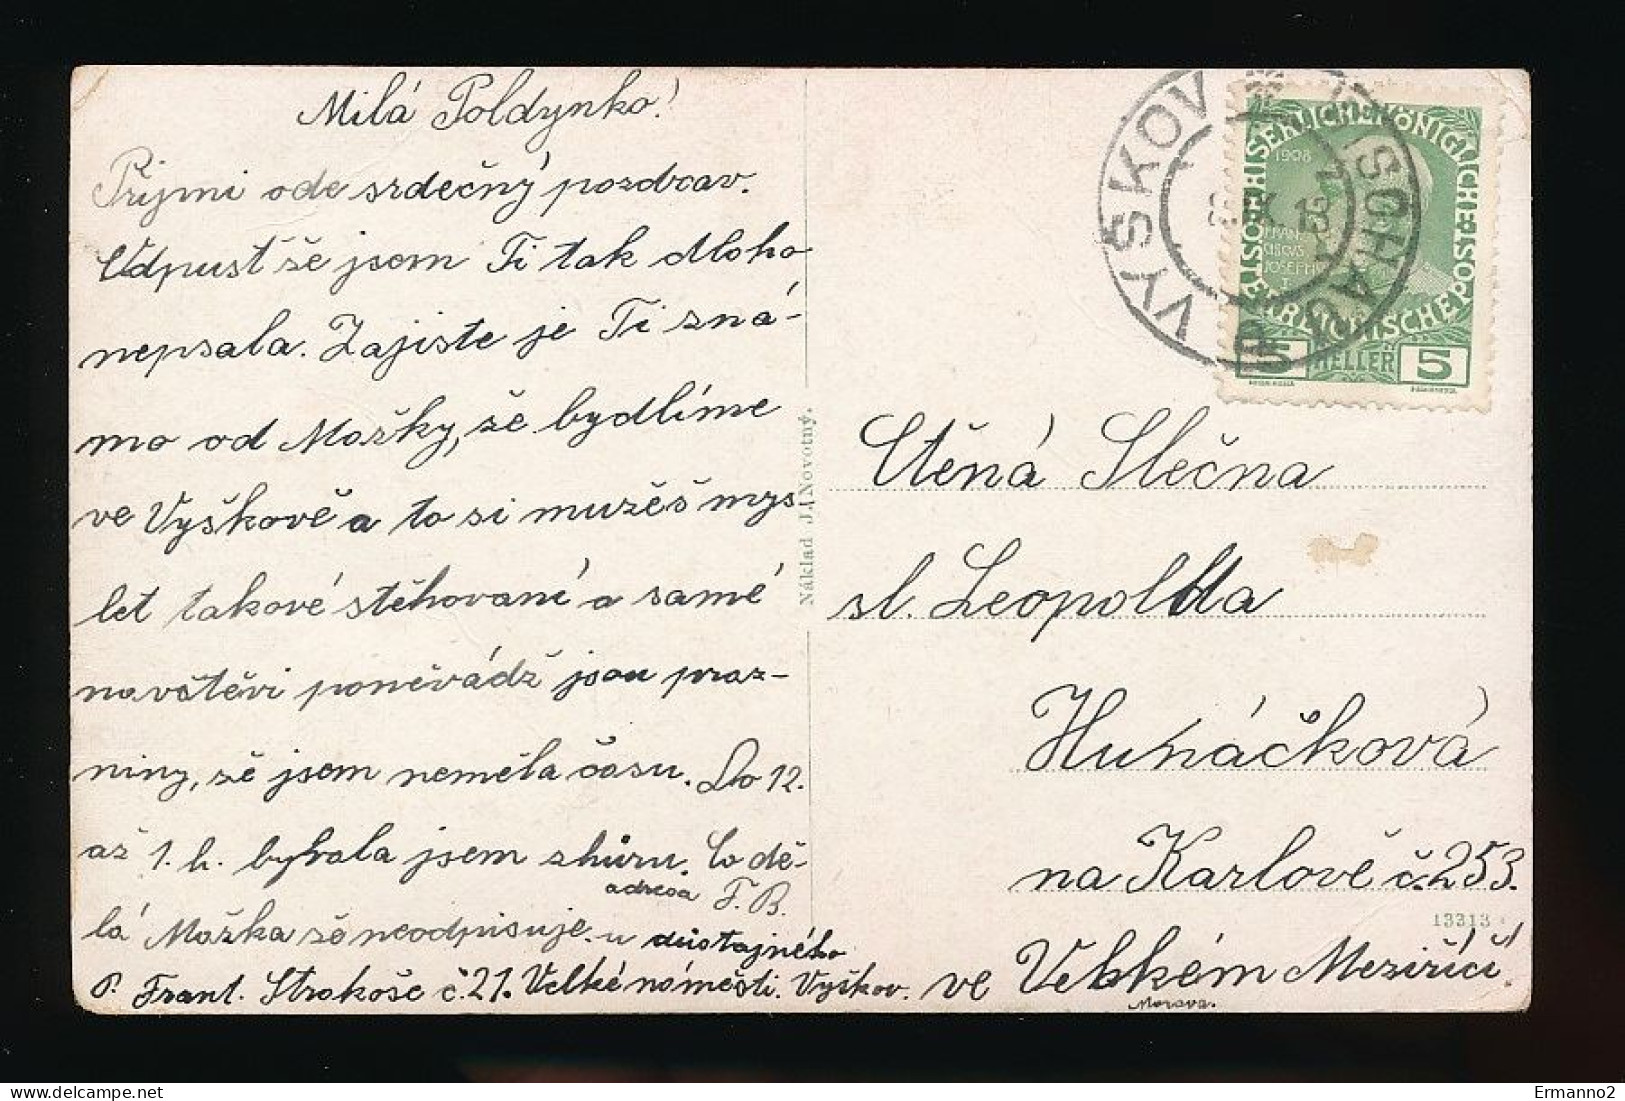 Milá Poldynko!
Prijmi ode srdečný pozdrav.
Odpusť še jsem Ti tak dloho
nepsala. Zajiste je Ti zná-
mo od Mažky, še bydlíme
ve Vyškově a to si muzěš mys
let takové stěhovaní a samé
navštěvi poněvádž jsou praz-
niny, še jsem neměla času. Do 12.
až 1. h. byvala jsem zhůru. Co dě-
lá Mažka še neodpisuje. u důstajného
adresa F. B.
P. Frant. Strakoše č. 21. Velké náměsti. Vyškov.
Náklad J. Novotný.
VYŠKOV
WISCHAU
1908
KAISERLICHE KÖNIGLICHE
ÖSTERREICHISCHE POST
FRANCISCVS
JOSEPH I
5 HELLER 5
Ctěná Slečna
sl. Leopolda
Hunáčková
na Karlově č. 253.
13313
ve Velkém Meziříčí
Morava.
Ermanno2